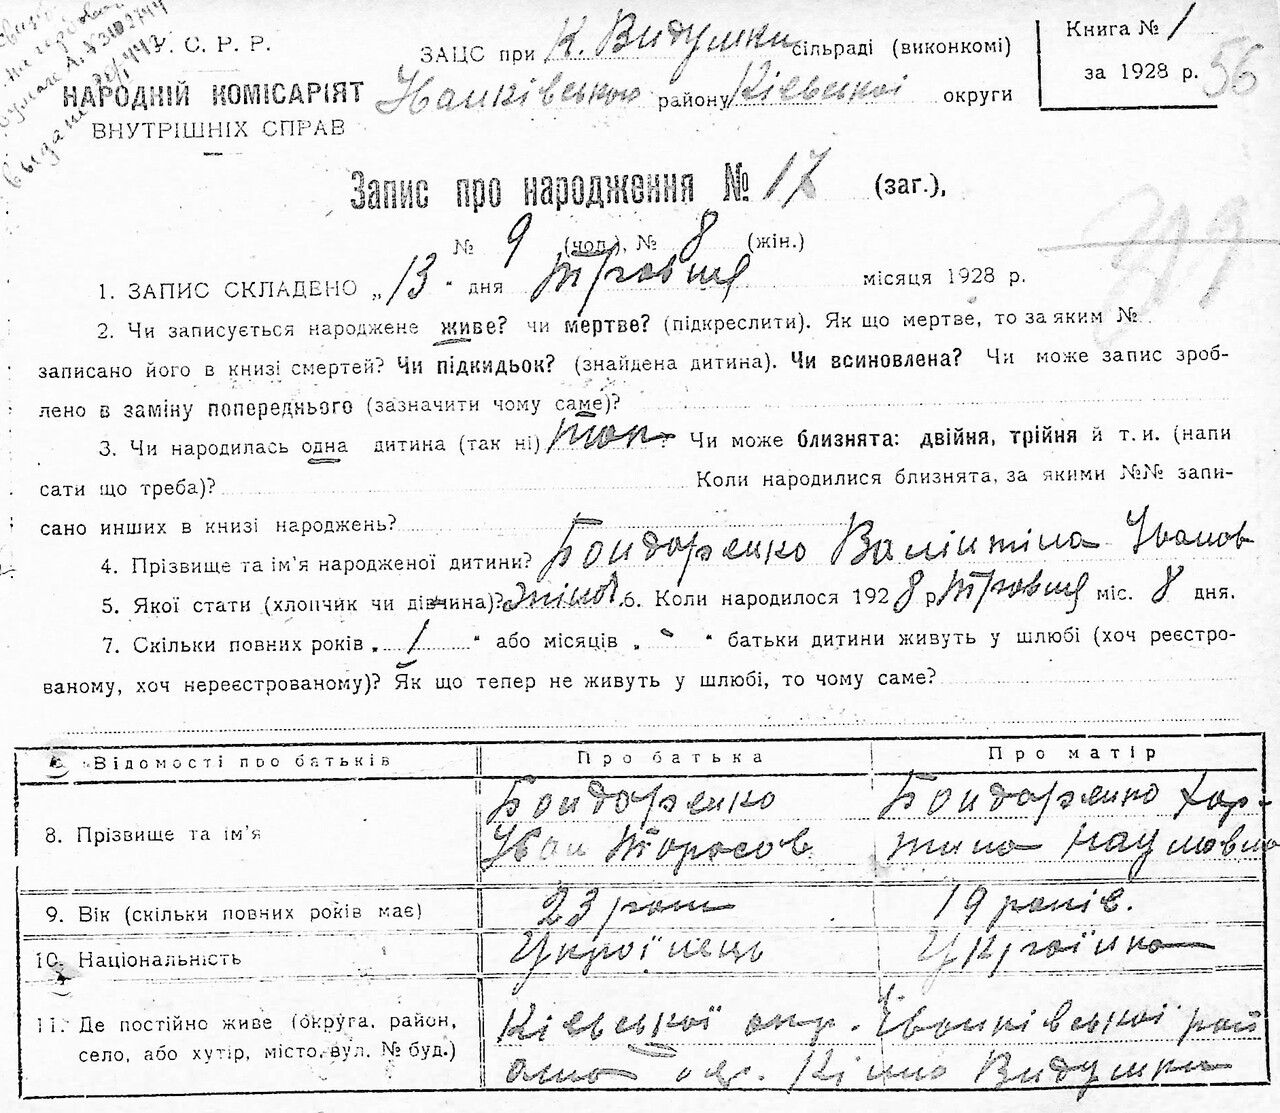 У. С. Р. Р.
НАРОДНІЙ КОМІСАРІЯТ
ВНУТРІШНІХ СПРАВ
ЗАЦС при К. Видумки сільраді (виконкомі)
Іванківського району Кієвської округи
Книга № 1
за 1928 р. 56
Запис про народження № 17 (заг.),
№ 9 (чол.), № 8 (жін.)
1. ЗАПИС СКЛАДЕНО „13" дня Травня місяця 1928 р.
2. Чи записується народжене живе? чи мертве? (підкреслити). Як що мертве, то за яким №
записано його в книзі смертей? Чи підкидьок? (знайдена дитина). Чи всиновлена? Чи може запис зроб-
лено в заміну попереднього (зазначити чому саме)?
3. Чи народилась одна дитина (так ні) так Чи може близнята: двійня, трійня й т. и. (напи
сати що треба)? Коли народилися близнята, за якими №№ запи-
сано инших в книзі народжень?
4. Прізвище та ім'я народженої дитини? Бондаренко Валінтіна Іванов
5. Якої стати (хлопчик чи дівчина)? жіноч. 6. Коли народилося 1928 р Травня міс. 8 дня.
7. Скільки повних років „ 1 " або місяців „ - " батьки дитини живуть у шлюбі (хоч реєстро-
ваному, хоч нереєстрованому)? Як що тепер не живуть у шлюбі, то чому саме?
Відомості про батьків Про батька Про матір
8. Прізвище та ім'я Бондаренко Іван Тарасов Бондаренко Хар-
тина Наумовна
9. Вік (скільки повних років має) 23 роки 19 років.
10. Національність Українець Українка
11. Де постійно живе (округа, район, Кієвської окр. Іванківської рай
село, або хутір, місто, вул. № буд.) Видумки